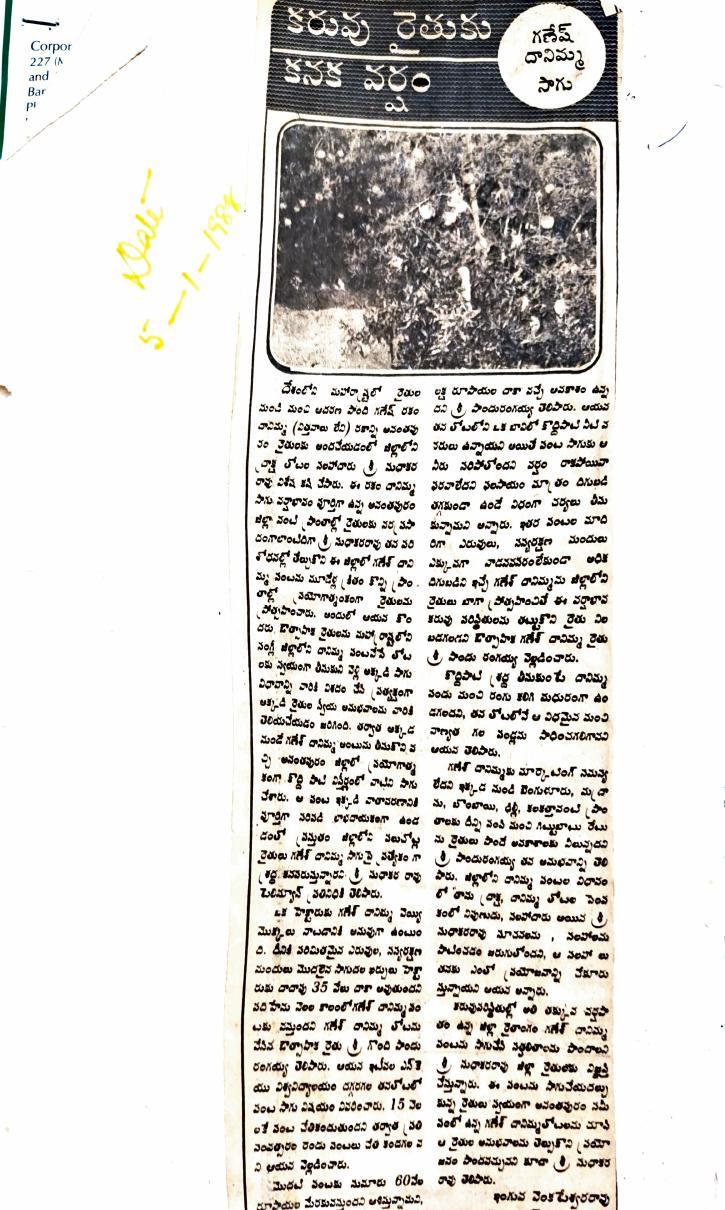 Corpor
227 (N
and
Bar
Pl
కరువు రైతుకు
కనక వర్షం
గణేష్
దానిమ్మ
సాగు
Date
5-1-1988
దేశంలోని మహారాష్ట్రలో రైతుల
నుండి మంచి ఆదరణ పొంది గణేష్ రకం
దానిమ్మ (విత్తనాలు లేని) రకాన్ని అనంతపు
రం రైతులకు అందచేయడంలో జిల్లాలోని
ద్రాక్ష తోటల సలహాదారు శ్రీ సుధాకర
రావు విశేష కృషి చేసారు. ఈ రకం దానిమ్మ
సాగు వర్షాభావం పూర్తిగా ఉన్న అనంతపురం
జిల్లా వంటి ప్రాంతాల్లో రైతులకు వర్షప్రసా
దంలాంటిదిగా శ్రీ సుధాకరరావు తన పరి
శోధనల్లో తేల్చుకొని ఈ జిల్లాలో గణేష్ దాని
మ్మ పంటను మూడేళ్ల క్రితం కొన్ని ప్రాం
తాల్లో ప్రయోగాత్మకంగా రైతులను
ప్రోత్సహించారు. అందులో ఆయన కొం
దరు ఔత్సాహిక రైతులను మహారాష్ట్రలోని
సంగ్లీ జిల్లాలోని దానిమ్మ పంటవేసే తోట
లకు స్వయంగా తీసుకుని వెళ్లి అక్కడి సాగు
విధానాన్ని వారికి విశదం చేసి ప్రత్యక్షంగా
అక్కడి రైతుల స్వీయ అనుభవాలను వారికి
తెలియచేయడం జరిగింది. తర్వాత అక్కడ
నుండే గణేష్ దానిమ్మ అంటును తీసుకొని వ
చ్చి అనంతపురం జిల్లాలో ప్రయోగాత్మ
కంగా కొద్ది పాటి విస్తీర్ణంలో వాటిని సాగు
చేశారు. ఆ పంట ఇక్కడి వాతావరణానికి
పూర్తిగా సరిపడి లాభదాయకంగా ఉండ
డంతో ప్రస్తుతం జిల్లాలోని పలుచోట్ల
రైతులు గణేష్ దానిమ్మ సాగుపై ప్రత్యేకంగా
శ్రద్ధ కనపరుస్తున్నారని శ్రీ సుధాకర రావు
ప్రతినిధికి తెలిపారు.
ఒక హెక్టారుకు గణేష్ దానిమ్మ వెయ్యి
మొక్కలు నాటడానికి అనువుగా ఉంటుం
ది. దీనికి పరిమితమైన ఎరువుల, సస్యరక్షణ
మందులు మొదలైన సాగుదల ఖర్చులు హెక్టా
రుకు దాదాపు 35 వేలు దాకా అవుతుందని
పదిహేను నెలల కాలంలో గణేష్ దానిమ్మ పం
టకు వస్తుందని గణేష్ దానిమ్మ తోటను
వేసిన ఔత్సాహిక రైతు శ్రీ గొంది పాండు
రంగయ్య తెలిపారు. ఆయన ఇటీవల ఎస్‌కె
యు విశ్వవిద్యాలయం దగ్గరగల తనతోటలో
పంట సాగు విషయం వివరించారు. 15 నెల
లకే పంట చేతికందుతుందని తర్వాత ప్రతి
సంవత్సరం రెండు పంటలు చేతి కందగల వ
ని ఆయన వెల్లడించారు.
మొదటి పంటకు సుమారు 60వేల
రూపాయల మేరకువస్తుందని ఆశిస్తున్నామని,
లక్ష రూపాయల దాకా వచ్చే అవకాశం ఉన్న
దని శ్రీ పాండురంగయ్య తెలిపారు. ఆయన
తన తోటలోని ఒక బావిలో కొద్దిపాటి నీటి వ
నరులు ఉన్నాయని అయితే పంట సాగుకు ఆ
నీరు సరిపోతోందని వర్షం రాకపోయినా
ఫరవాలేదని ఫలసాయం మాత్రం దిగుబడి
తగ్గకుండా ఉండే విధంగా చర్యలు తీసు
కున్నామని అన్నారు. ఇతర పంటల మాది
రిగా ఎరువులు, సస్యరక్షణ మందులు
ఎక్కువగా వాడనవసరంలేకుండా అధిక
దిగుబడిని ఇచ్చే గణేష్ దానిమ్మను జిల్లాలోని
రైతులు బాగా ప్రోత్సహించితే ఈ వర్షాభావ
కరువు పరిస్థితులను తట్టుకొని రైతు నిల
బడగలడని ఔత్సాహిక గణేష్ దానిమ్మ రైతు
శ్రీ పాండు రంగయ్య వెల్లడించారు.
కొద్దిపాటి శ్రద్ధ తీసుకుంటే దానిమ్మ
పండు మంచి రంగు కలిగి మధురంగా ఉం
డగలదని, తన తోటలోనే ఆ విధమైన మంచి
నాణ్యత గల పండ్లను సాధించగలిగానని
ఆయన తెలిపారు.
గణేష్ దానిమ్మకు మార్కెటింగ్ సమస్య
లేదని ఇక్కడ నుండి బెంగుళూరు, మద్రా
సు, బొంబాయి, ఢిల్లీ, కలకత్తావంటి ప్రాం
తాలకు దీన్ని పంపి మంచి గిట్టుబాటు రేటు
ను రైతులు పొందే అవకాశాలకు వీలున్నదని
శ్రీ పాండురంగయ్య తన అనుభవాన్ని తెలి
పారు. జిల్లాలోని దానిమ్మ పంటల విధానం
లో తాను ద్రాక్ష, దానిమ్మ తోటల పెంప
కంలో నిపుణుడు, సలహాదారు అయిన శ్రీ
సుధాకరరావు సూచనలను, సలహాలను
పాటించడం జరుగుతోందని, ఆ సలహా లు
తనకు ఎంతో ప్రయోజనాన్ని చేకూరు
స్తున్నాయని ఆయన అన్నారు.
కరువుపరిస్థితుల్లో అతి తక్కువ వర్షపా
తం ఉన్న జిల్లా రైతాంగం గణేష్ దానిమ్మ
పంటను సాగుచేసి సత్ఫలితాలను పొందాలని
శ్రీ సుధాకరరావు జిల్లా రైతులకు విజ్ఞప్తి
చేస్తున్నారు. ఈ పంటను సాగుచేయదల్చు
కున్న రైతులు స్వయంగా అనంతపురం సమీ
పంలో ఉన్న గణేష్ దానిమ్మతోటలను చూసి
ఆ రైతుల అనుభవాలను తెల్సుకొని ప్రయో
జనం పొందవచ్చునని కూడా శ్రీ సుధాకర
రావు తెలిపారు.
ఇంగువ వెంకటేశ్వరరావు